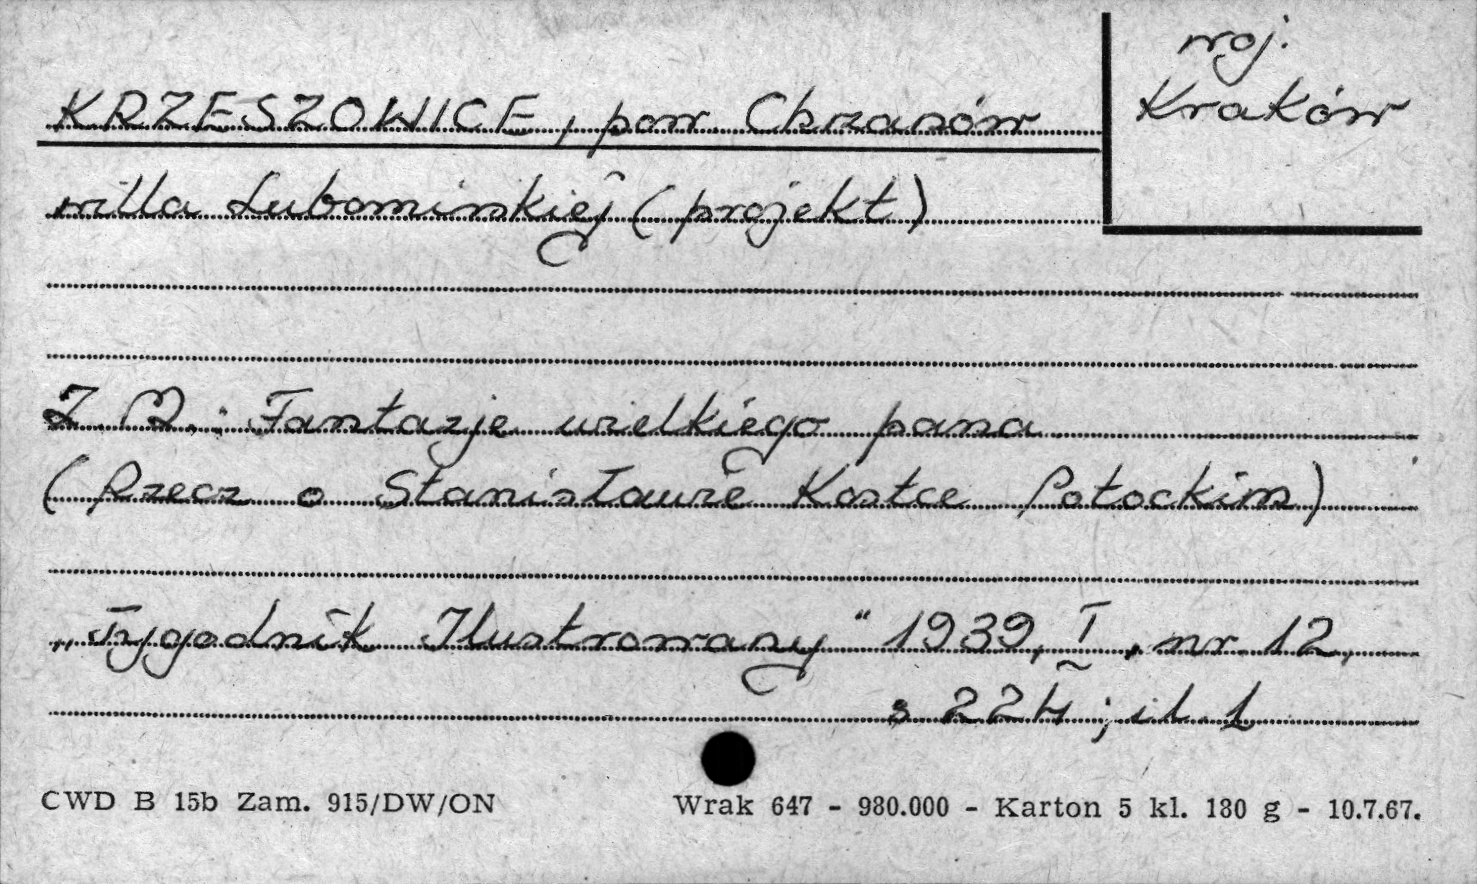 woj.
Kraków
KRZESZOWICE, pow Chrzanów
willa Lubomirskiej (projekt)
Z. M. : Fantazje wielkiego pana
(Rzecz o Stanisławie Kostce Potockim)
„Tygodnik Ilustrowany" 1939, I, nr 12,
s 224 ; il. 1
CWD B 15b Zam. 915/DW/ON
Wrak 647 - 980.000 - Karton 5 kl. 180 g - 10.7.67.